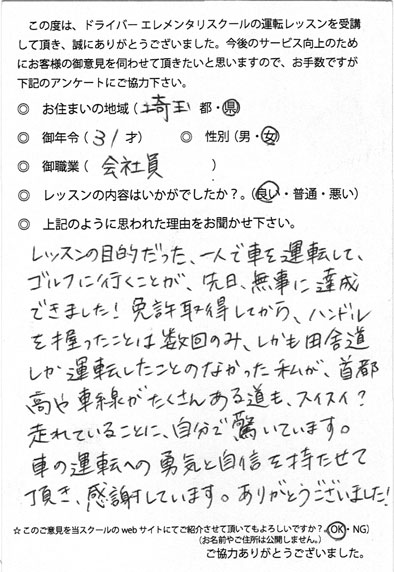 この度は、ドライバー エレメンタリスクールの運転レッスンを受講
して頂き、誠にありがとうございました。今後のサービス向上のため
にお客様の御意見を伺わせて頂きたいと思いますので、お手数ですが
下記のアンケートにご協力下さい。
◎ お住まいの地域（埼玉 都・県）
◎ 御年令（31才） ◎ 性別（男・女）
◎ 御職業（会社員）
◎ レッスンの内容はいかがでしたか？。（良い・普通・悪い）
◎ 上記のように思われた理由をお聞かせ下さい。
レッスンの目的だった、一人で車を運転して、
ゴルフに行くことが、先日、無事に達成
できました！免許取得してから、ハンドル
を握ったことは数回のみ、しかも田舎道
しか運転したことのなかった私が、首都
高や車線がたくさんある道も、スイスイ？
走れていることに、自分で驚いています。
車の運転への勇気と自信を持たせて
頂き、感謝しています。ありがとうございました！
☆このご意見を当スクールのwebサイトにてご紹介させて頂いてもよろしいですか？（OK・NG）
（お名前やご住所は公開しません。）
ご協力ありがとうございました。